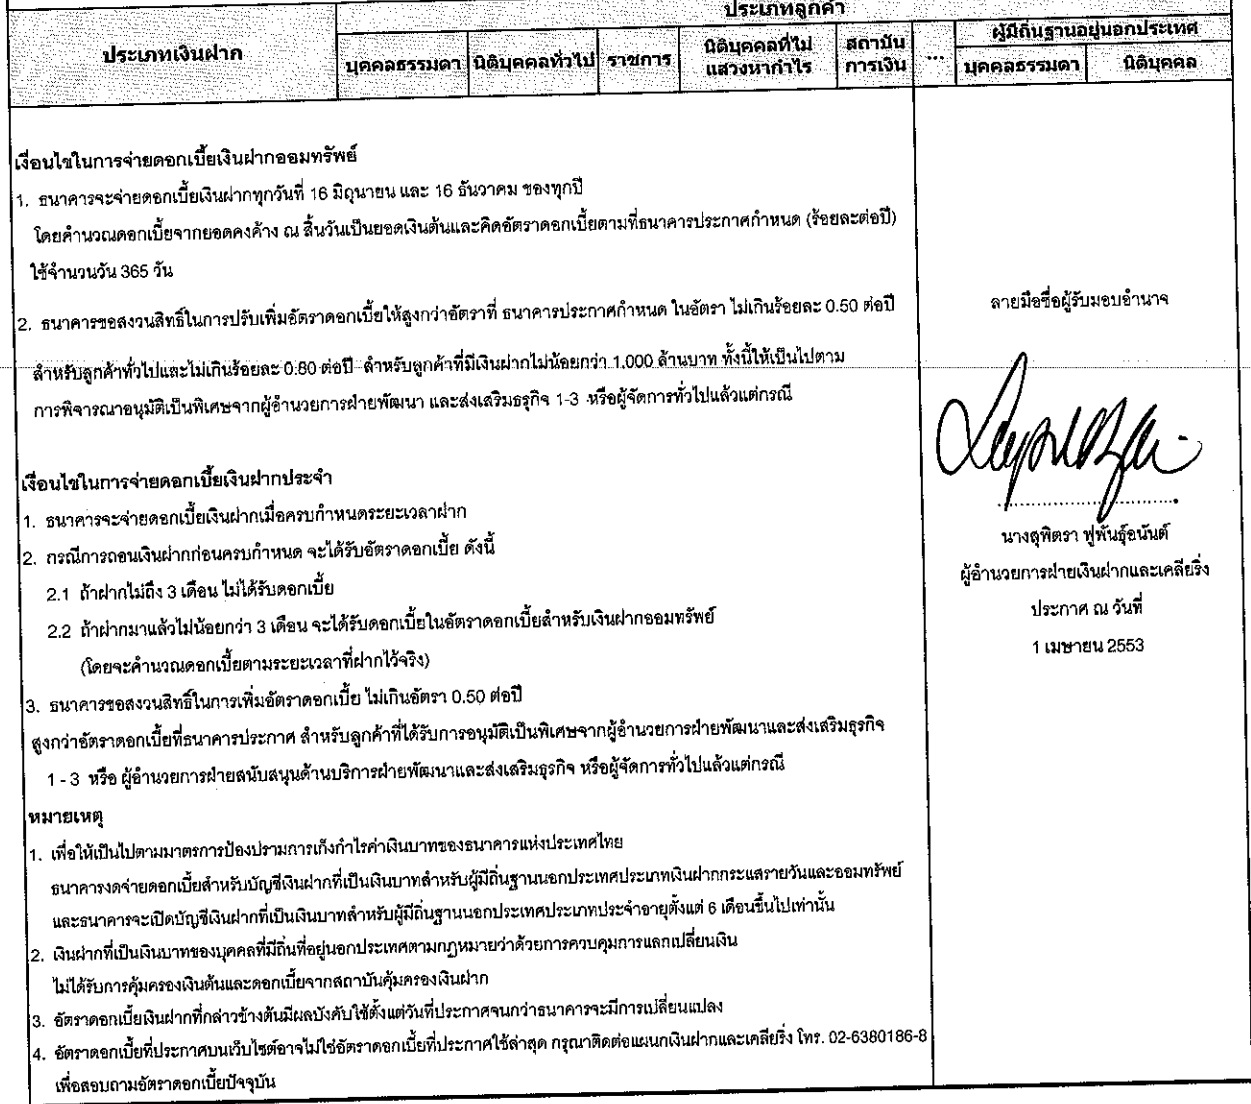 ประเภทลูกค้า
ประเภทเงินฝาก
บุคคลธรรมดา
นิติบุคคลทั่วไป
ราชการ
นิติบุคคลที่ไม่
แสวงหากำไร
สถาบัน
การเงิน
...
ผู้มีถิ่นฐานอยู่นอกประเทศ
บุคคลธรรมดา
นิติบุคคล
เงื่อนไขในการจ่ายดอกเบี้ยเงินฝากออมทรัพย์
1. ธนาคารจะจ่ายดอกเบี้ยเงินฝากทุกวันที่ 16 มิถุนายน และ 16 ธันวาคม ของทุกปี
โดยคำนวณดอกเบี้ยจากยอดคงค้าง ณ สิ้นวันเป็นยอดเงินต้นและคิดอัตราดอกเบี้ยตามที่ธนาคารประกาศกำหนด (ร้อยละต่อปี)
ใช้จำนวนวัน 365 วัน
2. ธนาคารขอสงวนสิทธิ์ในการปรับเพิ่มอัตราดอกเบี้ยให้สูงกว่าอัตราที่ ธนาคารประกาศกำหนด ในอัตรา ไม่เกินร้อยละ 0.50 ต่อปี
สำหรับลูกค้าทั่วไปและไม่เกินร้อยละ 0.80 ต่อปี สำหรับลูกค้าที่มีเงินฝากไม่น้อยกว่า 1,000 ล้านบาท ทั้งนี้ให้เป็นไปตาม
การพิจารณาอนุมัติเป็นพิเศษจากผู้อำนวยการฝ่ายพัฒนา และส่งเสริมธุรกิจ 1-3 หรือผู้จัดการทั่วไปแล้วแต่กรณี
เงื่อนไขในการจ่ายดอกเบี้ยเงินฝากประจำ
1. ธนาคารจะจ่ายดอกเบี้ยเงินฝากเมื่อครบกำหนดระยะเวลาฝาก
2. กรณีการถอนเงินฝากก่อนครบกำหนด จะได้รับอัตราดอกเบี้ย ดังนี้
2.1 ถ้าฝากไม่ถึง 3 เดือน ไม่ได้รับดอกเบี้ย
2.2 ถ้าฝากมาแล้วไม่น้อยกว่า 3 เดือน จะได้รับดอกเบี้ยในอัตราดอกเบี้ยสำหรับเงินฝากออมทรัพย์
(โดยจะคำนวณดอกเบี้ยตามระยะเวลาที่ฝากไว้จริง)
3. ธนาคารขอสงวนสิทธิ์ในการเพิ่มอัตราดอกเบี้ย ไม่เกินอัตรา 0.50 ต่อปี
สูงกว่าอัตราดอกเบี้ยที่ธนาคารประกาศ สำหรับลูกค้าที่ได้รับการอนุมัติเป็นพิเศษจากผู้อำนวยการฝ่ายพัฒนาและส่งเสริมธุรกิจ
1 - 3 หรือ ผู้อำนวยการฝ่ายสนับสนุนด้านบริการฝ่ายพัฒนาและส่งเสริมธุรกิจ หรือผู้จัดการทั่วไปแล้วแต่กรณี
หมายเหตุ
1. เพื่อให้เป็นไปตามมาตรการป้องปรามการเก็งกำไรค่าเงินบาทของธนาคารแห่งประเทศไทย
ธนาคารงดจ่ายดอกเบี้ยสำหรับบัญชีเงินฝากที่เป็นเงินบาทสำหรับผู้มีถิ่นฐานนอกประเทศประเภทเงินฝากกระแสรายวันและออมทรัพย์
และธนาคารจะเปิดบัญชีเงินฝากที่เป็นเงินบาทสำหรับผู้มีถิ่นฐานนอกประเทศประเภทประจำอายุตั้งแต่ 6 เดือนขึ้นไปเท่านั้น
2. เงินฝากที่เป็นเงินบาทของบุคคลที่มีถิ่นที่อยู่นอกประเทศตามกฎหมายว่าด้วยการควบคุมการแลกเปลี่ยนเงิน
ไม่ได้รับการคุ้มครองเงินต้นและดอกเบี้ยจากสถาบันคุ้มครองเงินฝาก
3. อัตราดอกเบี้ยเงินฝากที่กล่าวข้างต้นมีผลบังคับใช้ตั้งแต่วันที่ประกาศจนกว่าธนาคารจะมีการเปลี่ยนแปลง
4. อัตราดอกเบี้ยที่ประกาศบนเว็บไซต์อาจไม่ใช่อัตราดอกเบี้ยที่ประกาศใช้ล่าสุด กรุณาติดต่อแผนกเงินฝากและเคลียริ่ง โทร. 02-6380186-8
เพื่อสอบถามอัตราดอกเบี้ยปัจจุบัน
ลายมือชื่อผู้รับมอบอำนาจ
นางสุพิตรา ฟูพันธุ์อนันต์
ผู้อำนวยการฝ่ายเงินฝากและเคลียริ่ง
ประกาศ ณ วันที่
1 เมษายน 2553